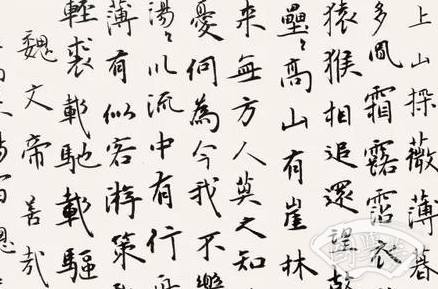 上山採薇薄暮
多風霜露霑衣
猿猴相追還望故
壘〻高山有崖林
来無方人莫之知
憂何為今我不樂
湯〻川流中有行
薄有似客游策
輕裘載馳載驅
魏文帝善哉